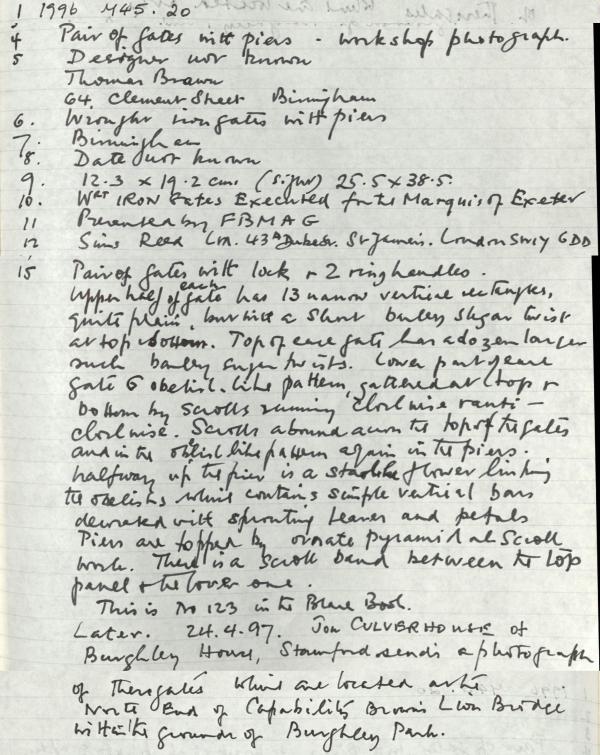 1 1996 M45.20
4 Pair of gates with piers - workshop photograph.
5 Designer not known
Thomas Brawn
64, Clement Street Birmingham
6. Wrought iron gates with piers
7. Birmingham
8. Date not known
9. 12.3 x 19.2 cms (sight) 25.5 x 38.5.
10. Wrt IRON Gates Executed for the Marquis of Exeter
11 Presented by FBMAG
12 Sims Reed Ltd. 43A Duke St. St James's. London SW1Y 6DD
15 Pair of gates with lock + 2 ring handles.
Upper half of each gate has 13 narrow vertical rectangles,
quite plain, but with a short barley sugar twist
at top + bottom. Top of each gate has a dozen larger
such barley sugar twists. Lower part of each
gate 6 obelisk-like pattern, gathered at top +
bottom by scrolls running clockwise + anti-
clockwise. Scrolls abound across the top of the gates
and in the obelisk like pattern again in the piers.
halfway up the pier is a starlike flower linking
the obelisks which contains simple vertical bars
decorated with sprouting leaves and petals
Piers are topped by ornate pyramidal scroll
work. There is a scroll band between the top
panel + the lower one.
This is No 123 in the Blue Book.
Later. 24.4.97. Jon CULVERHOUSE of
Burghley House, Stamford sends a photograph
of these gates which are located at the
North End of Capability Brown's Lion Bridge
within the grounds of Burghley Park.